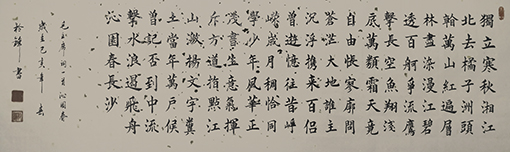 獨立寒秋湘江
北去橘子洲頭
看萬山紅遍層
林盡染漫江碧
透百舸爭流鷹
擊長空魚翔淺
底萬類霜天競
自由悵寥廓問
蒼茫大地誰主
沉浮携來百侶
曾遊憶往昔崢
嶸歲月稠恰同
學少年風華正
茂書生意氣揮
斥方遒指點江
山激揚文字糞
土當年萬戶侯
曾記否到中流
擊水浪遏飛舟
沁園春長沙
毛主席詞一首沁園春
歲在己亥年春
書